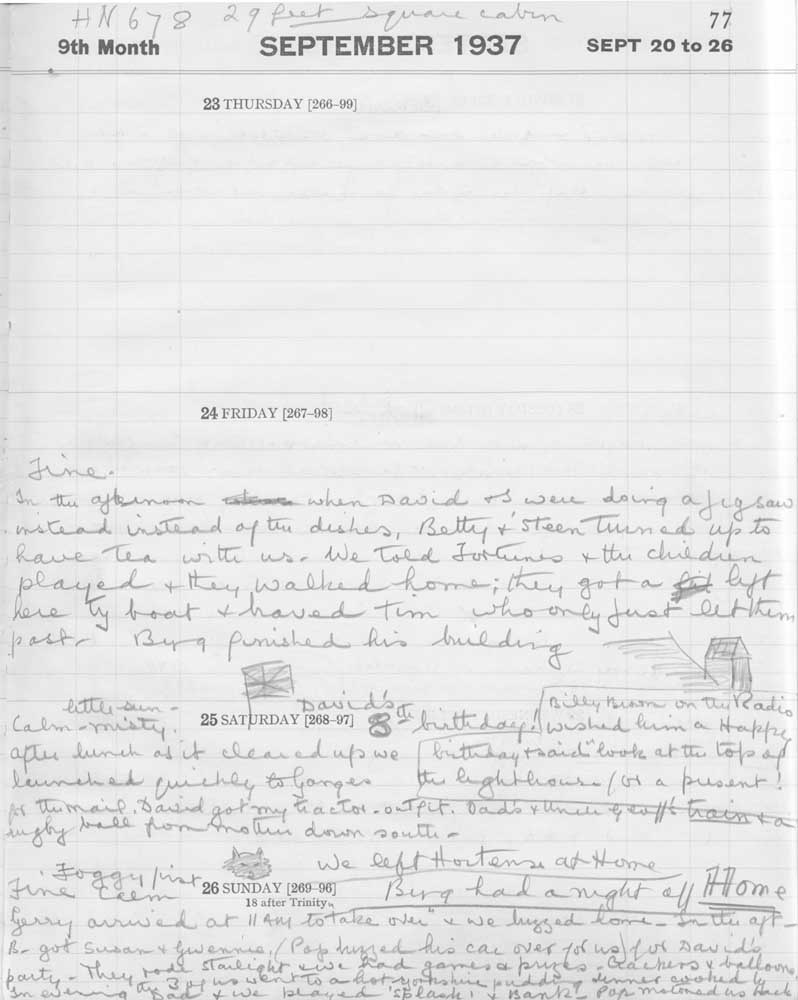 HN 678 29 feet square cabin
77
9th Month SEPTEMBER 1937 SEPT 20 to 26
23 THURSDAY [266–99]
24 FRIDAY [267–98]
Fine.
In the afternoon when David & I were doing a jigsaw
instead instead of the dishes, Betty & Steen turned up to
have tea with us. We told Fortunes & the children
played & they walked home; they got a lift
here by boat & braved Tim who only just let them
past. Berg finished his building
little sun -
Calm - misty.
25 SATURDAY [268–97]
David's 8th birthday!
Billy Brown on the Radio
wished him a Happy
birthday & said "look at the top of
the lighthouse for a present!
after lunch as it cleared up we
launched quickly to Ganges
for the mail. David got my tractor outfit. Dad's & Uncle Geoff's train & a
rugby ball from mother down south -
We left Hortense at Home
Foggy first
Fine Calm
26 SUNDAY [269–96]
18 after Trinity
Berg had a night off Home
Gerry arrived at 11 AM to "take over" & we buzzed home - In the aft -
B- got Susan & Gwennie, (Pop buzzed his car over for us) for David's
party - They rode Starlight & we had games & prizes - Crackers & balloons
the 3 of us went to a hot Yorkshire pudding dinner cooked by
In evening Dad & we played 'Splash' & Bank. Pop motored us back